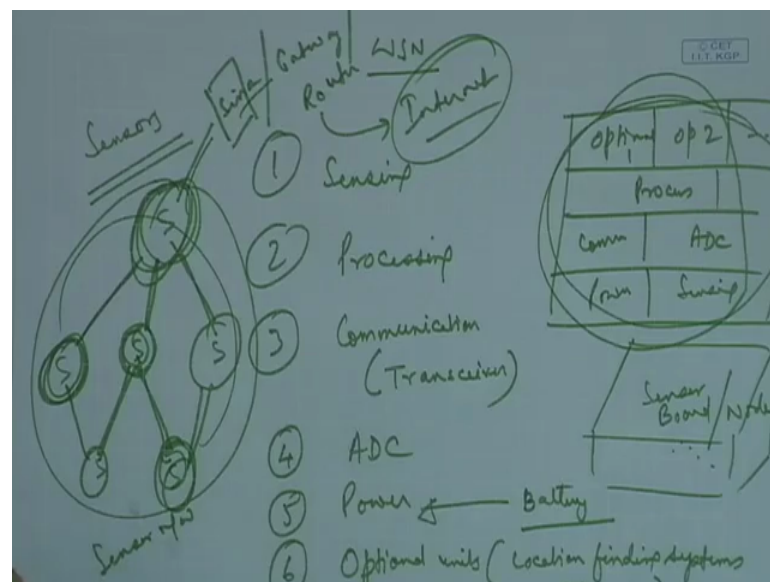 © CET
I.I.T. KGP
Sensors
Sink / Gateway / Router
WSN
Internet
S
S
S
S
S
S
Sensor N/W
① Sensing
② Processing
③ Communication
(Transceiver)
④ ADC
⑤ Power ← Battery
⑥ Optional units (Location finding systems
Optional 1 | Op 2 | --
Process
Comm | ADC
Power | Sensing
Sensor
Board / Node